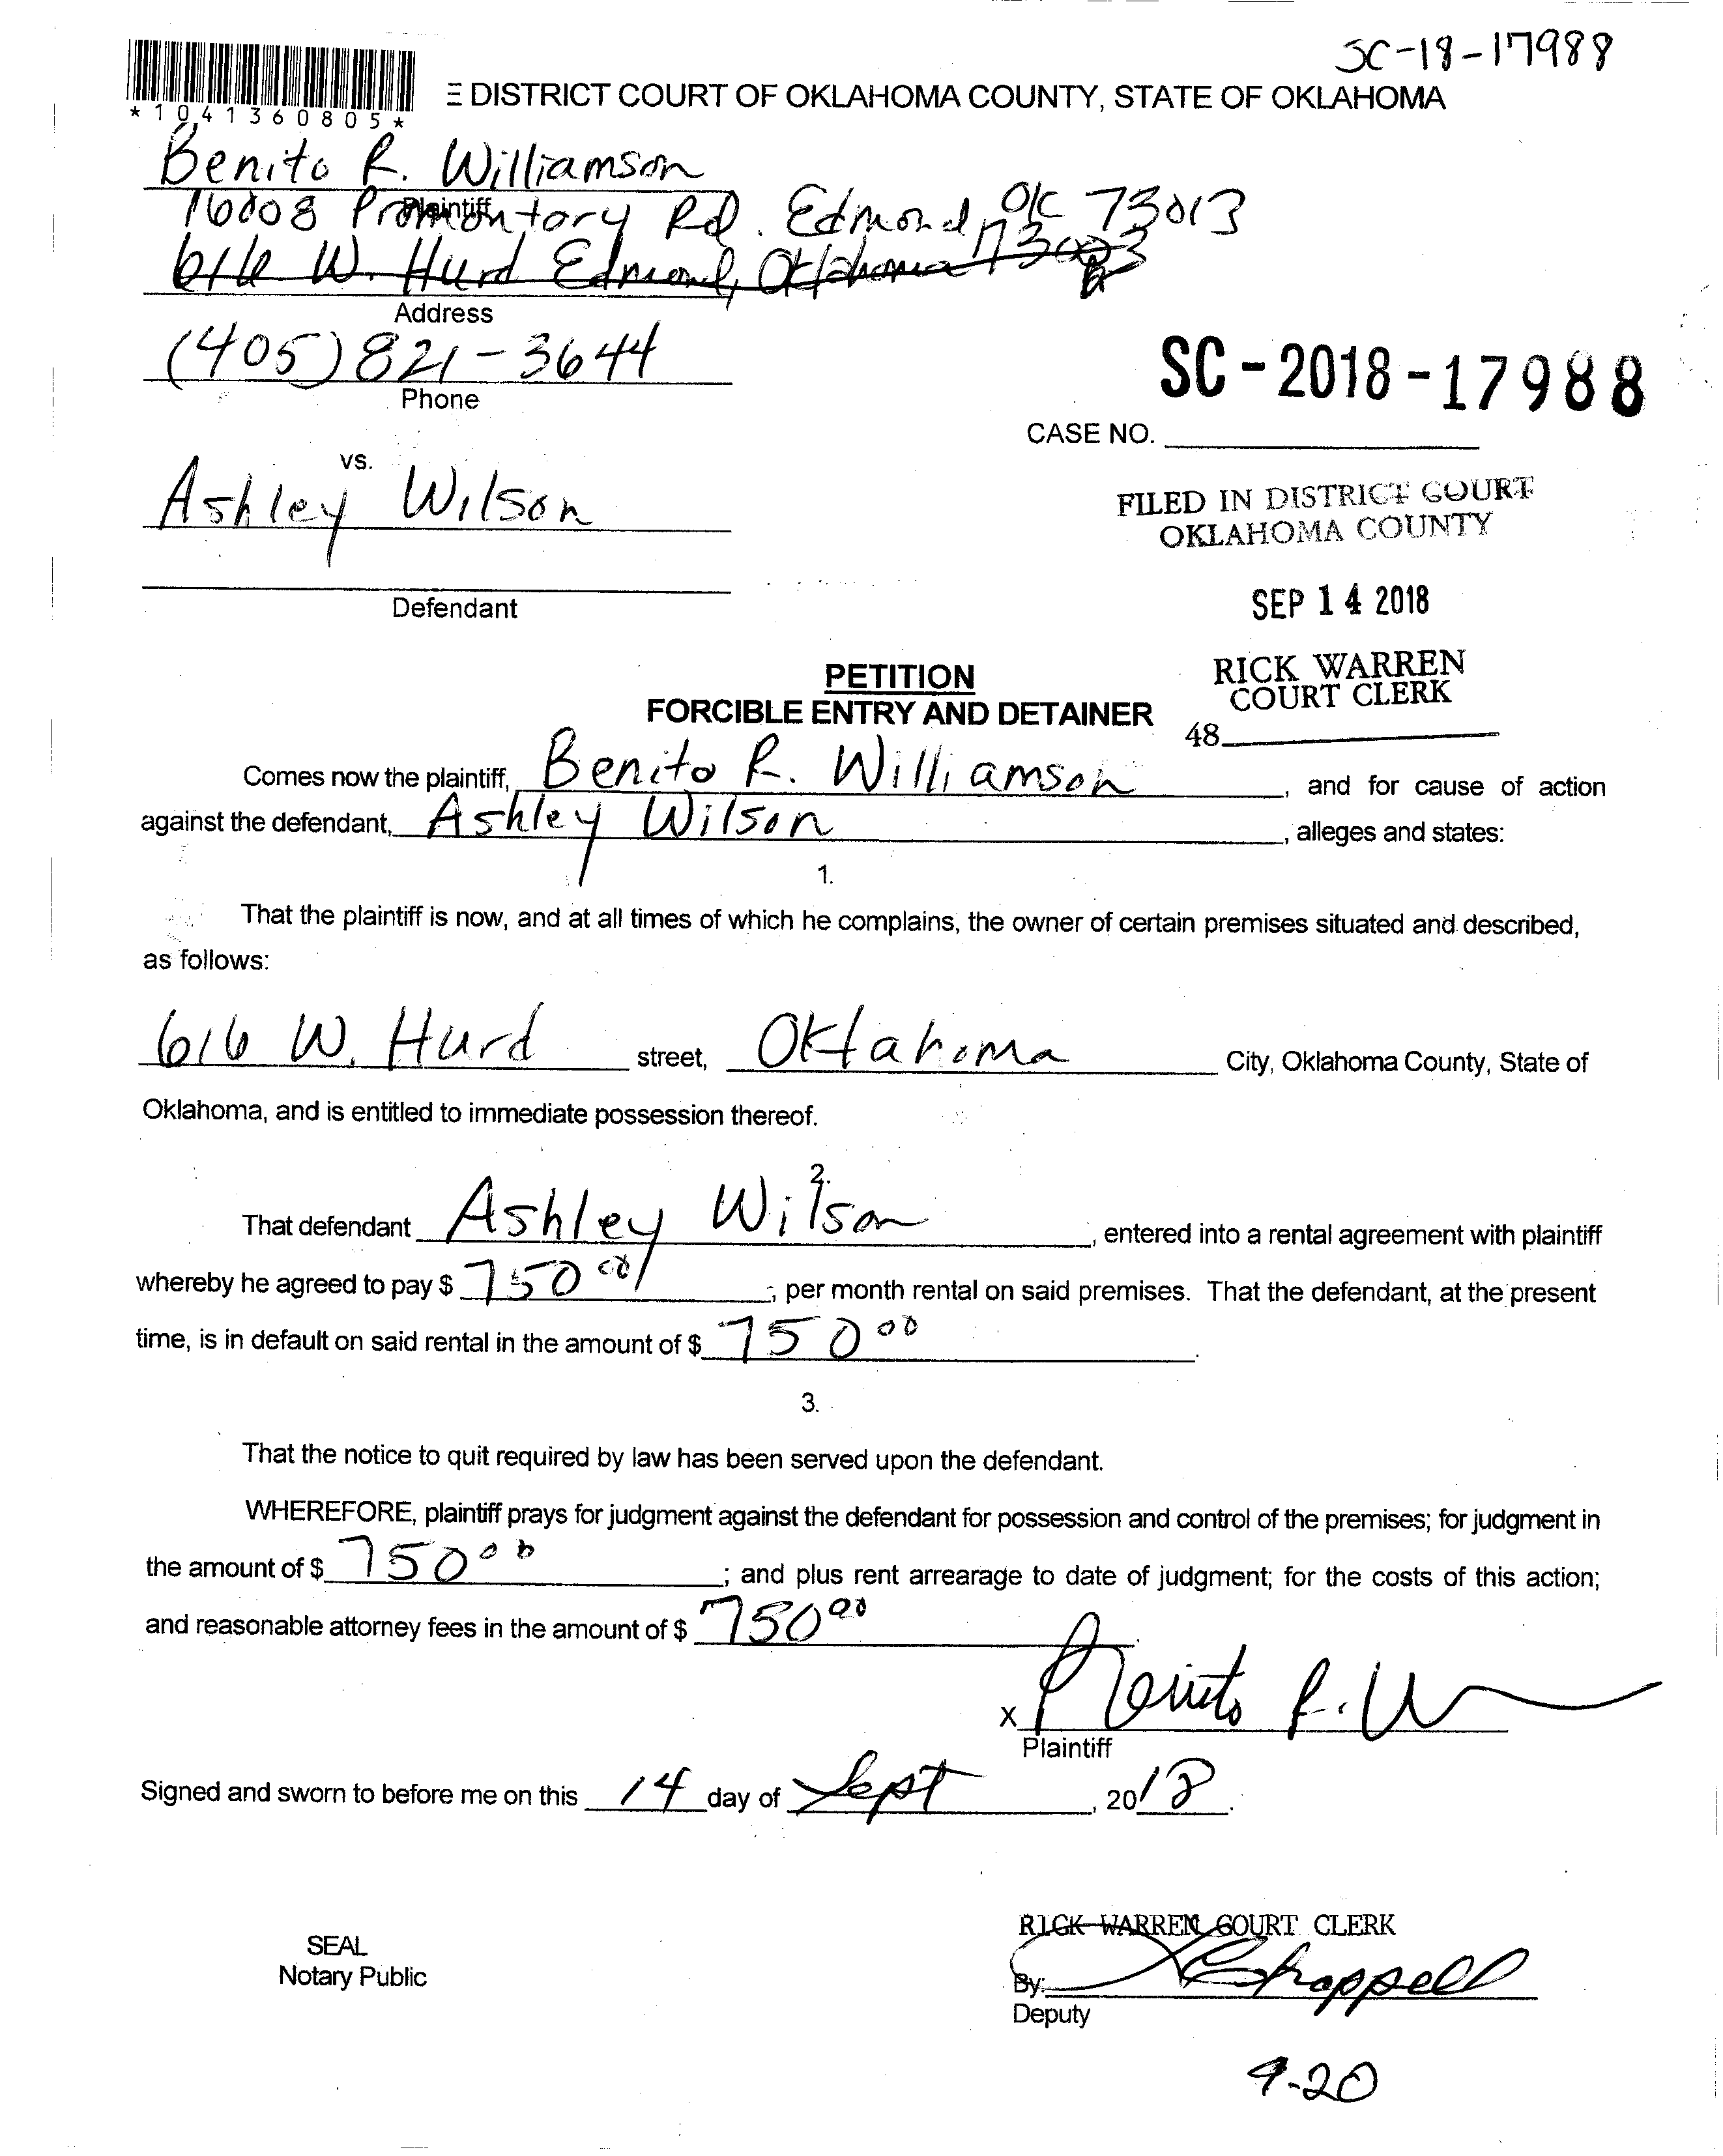 SC-18-17988
*1041360805*
E DISTRICT COURT OF OKLAHOMA COUNTY, STATE OF OKLAHOMA
Benito R. Williamson
Plaintiff
16008 Promontory Rd. Edmond, OK 73013
616 W. Hurd Edmond, Oklahoma
Address
(405) 821-3644
Phone
SC-2018-17988
CASE NO.
vs.
Ashley Wilson
FILED IN DISTRICT COURT
OKLAHOMA COUNTY
Defendant
SEP 14 2018
PETITION
FORCIBLE ENTRY AND DETAINER
RICK WARREN
COURT CLERK
48
Comes now the plaintiff, Benito R. Williamson, and for cause of action
against the defendant, Ashley Wilson, alleges and states:
1.
That the plaintiff is now, and at all times of which he complains, the owner of certain premises situated and described,
as follows:
616 W. Hurd street, Oklahoma City, Oklahoma County, State of
Oklahoma, and is entitled to immediate possession thereof.
2.
That defendant Ashley Wilson, entered into a rental agreement with plaintiff
whereby he agreed to pay $ 750 00, per month rental on said premises. That the defendant, at the present
time, is in default on said rental in the amount of $ 750 00.
3.
That the notice to quit required by law has been served upon the defendant.
WHEREFORE, plaintiff prays for judgment against the defendant for possession and control of the premises; for judgment in
the amount of $ 750 00; and plus rent arrearage to date of judgment; for the costs of this action;
and reasonable attorney fees in the amount of $ 750 00.
X Benito R. W
Plaintiff
Signed and sworn to before me on this 14 day of Sept, 2018.
RICK WARREN COURT CLERK
SEAL
Notary Public
By: Chappell
Deputy
9-20